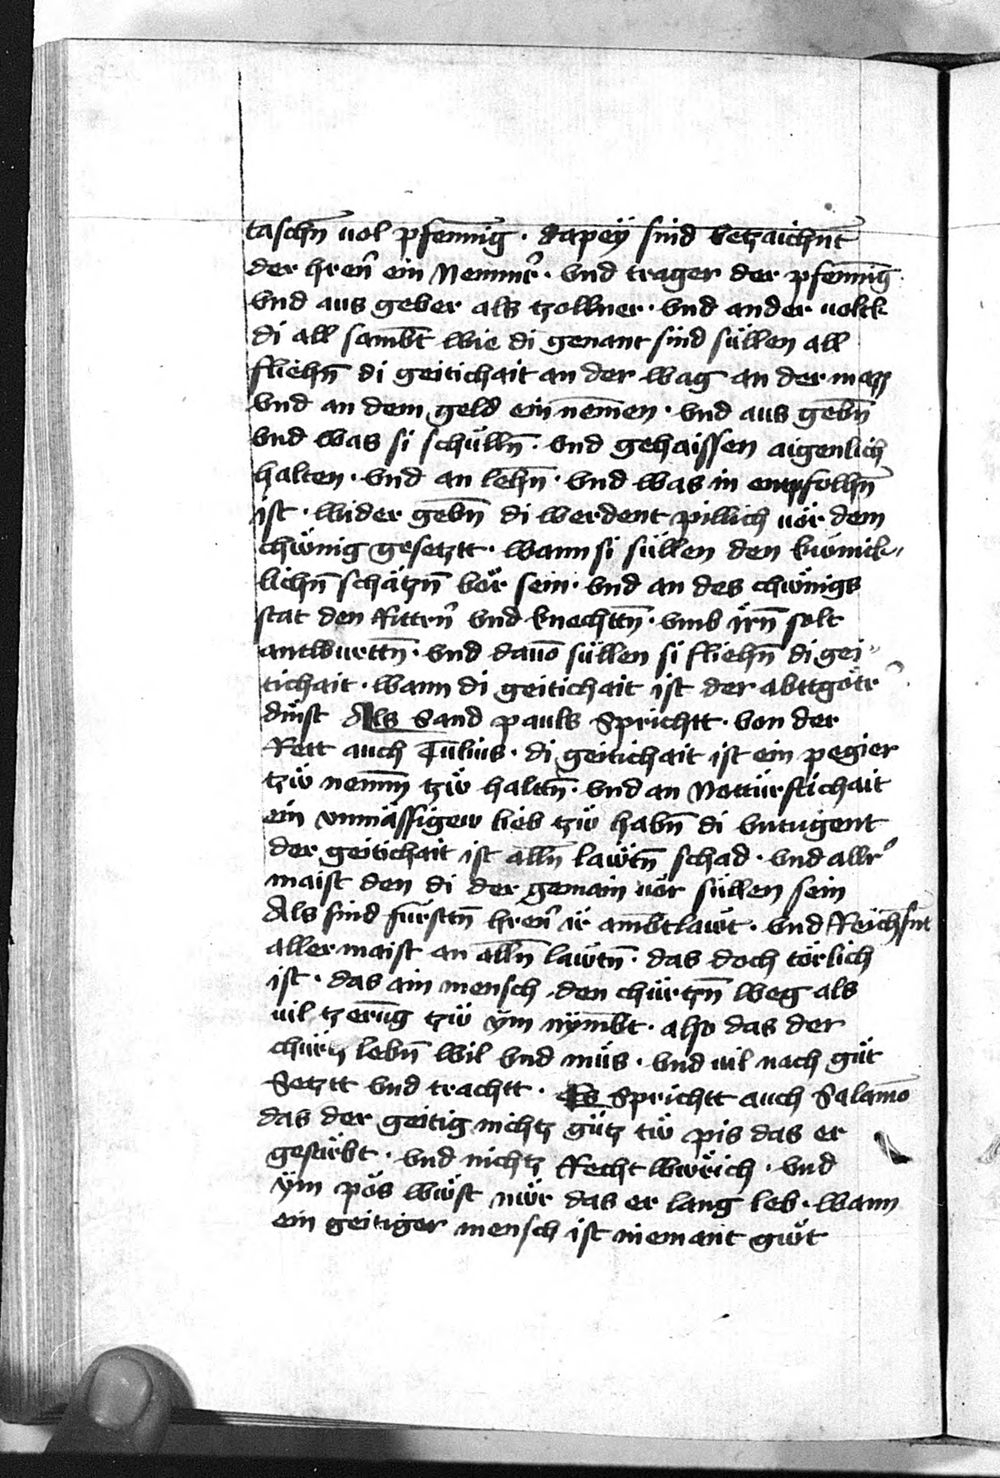 taschn̄ uol pfennīg · dapeÿ sind betzaichn̄t
der hren̄ ein Nemmr̄ · vnd trager der pfennīg
vnd aus geber als tzollner · vnd ander uolck
di all sambt̄ wie di genant sind süllen all
fliehn̄ di geitichait an der wag an der mass
vnd an dem geld ein nemen · vnd aus gebn̄
vnd was si schülln̄ · vnd gehaissen aigenlich
halten · vnd an lehn̄ · vnd was in enpfolhn̄
ist · wider gebn̄ di werdent pillich uör dem
chwönig gesetztt · wann si süllen den kwönick„
lichn̄ schätzn̄ vör sein · vnd an des chwönigs
stat den Rittrn̄ vnd knechttn̄ · vmb irn̄ solt
antwurttn̄ · vnd dauō süllen si fliehn̄ di gei„
tichait · wann di geitichait ist der abttgötr
dinst Als Sand pauls Sprichtt · von der
Rett auch Tulius · di geitichait ist ein pegier
tzw̎ nemm̄ tzw̎ haltn̄ · vnd an Nottürftichait
ein vnmässigew lieb tzw̎ habn̄ di vntugent
der geitichait ist alln̄ lawtn̄ schad · vnd allr̄
maist den di der gemain uör süllen sein
Als sind fürsttn̄ hren̄ ir ambtlawt · vnd Reichsn̄t
allermaist an alln̄ lawtn̄ · das doch törlich
ist · das ain mensch den chürtzn̄ weg als
uil tzerūg tzw̎ ÿm nÿmbt · also das der
chürtz lebn̄ wil vnd müs · vnd uil nach güt
Setztt vnd trachtt · Es Sprichtt auch Salamō
das der geitig nichtz gütz tw̎ pis das er
gestirbt · vnd nichtz Recht wwrich · vnd
ÿm pös wwst nw̎r das er lang leb · wann
ein geitiger mensch ist niemant gw̎t